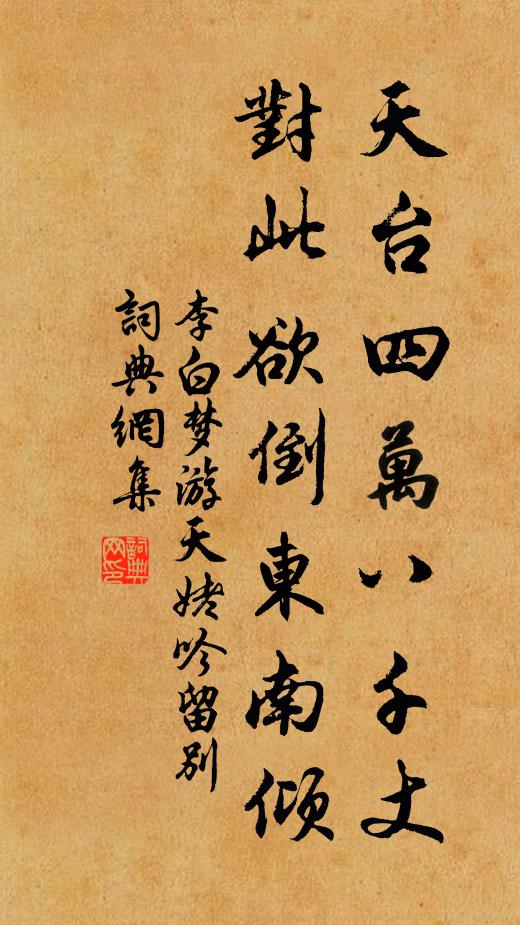 天台四萬八千丈
對此欲倒東南傾
李白梦游天姥吟留别
詞典網集
詞典网印